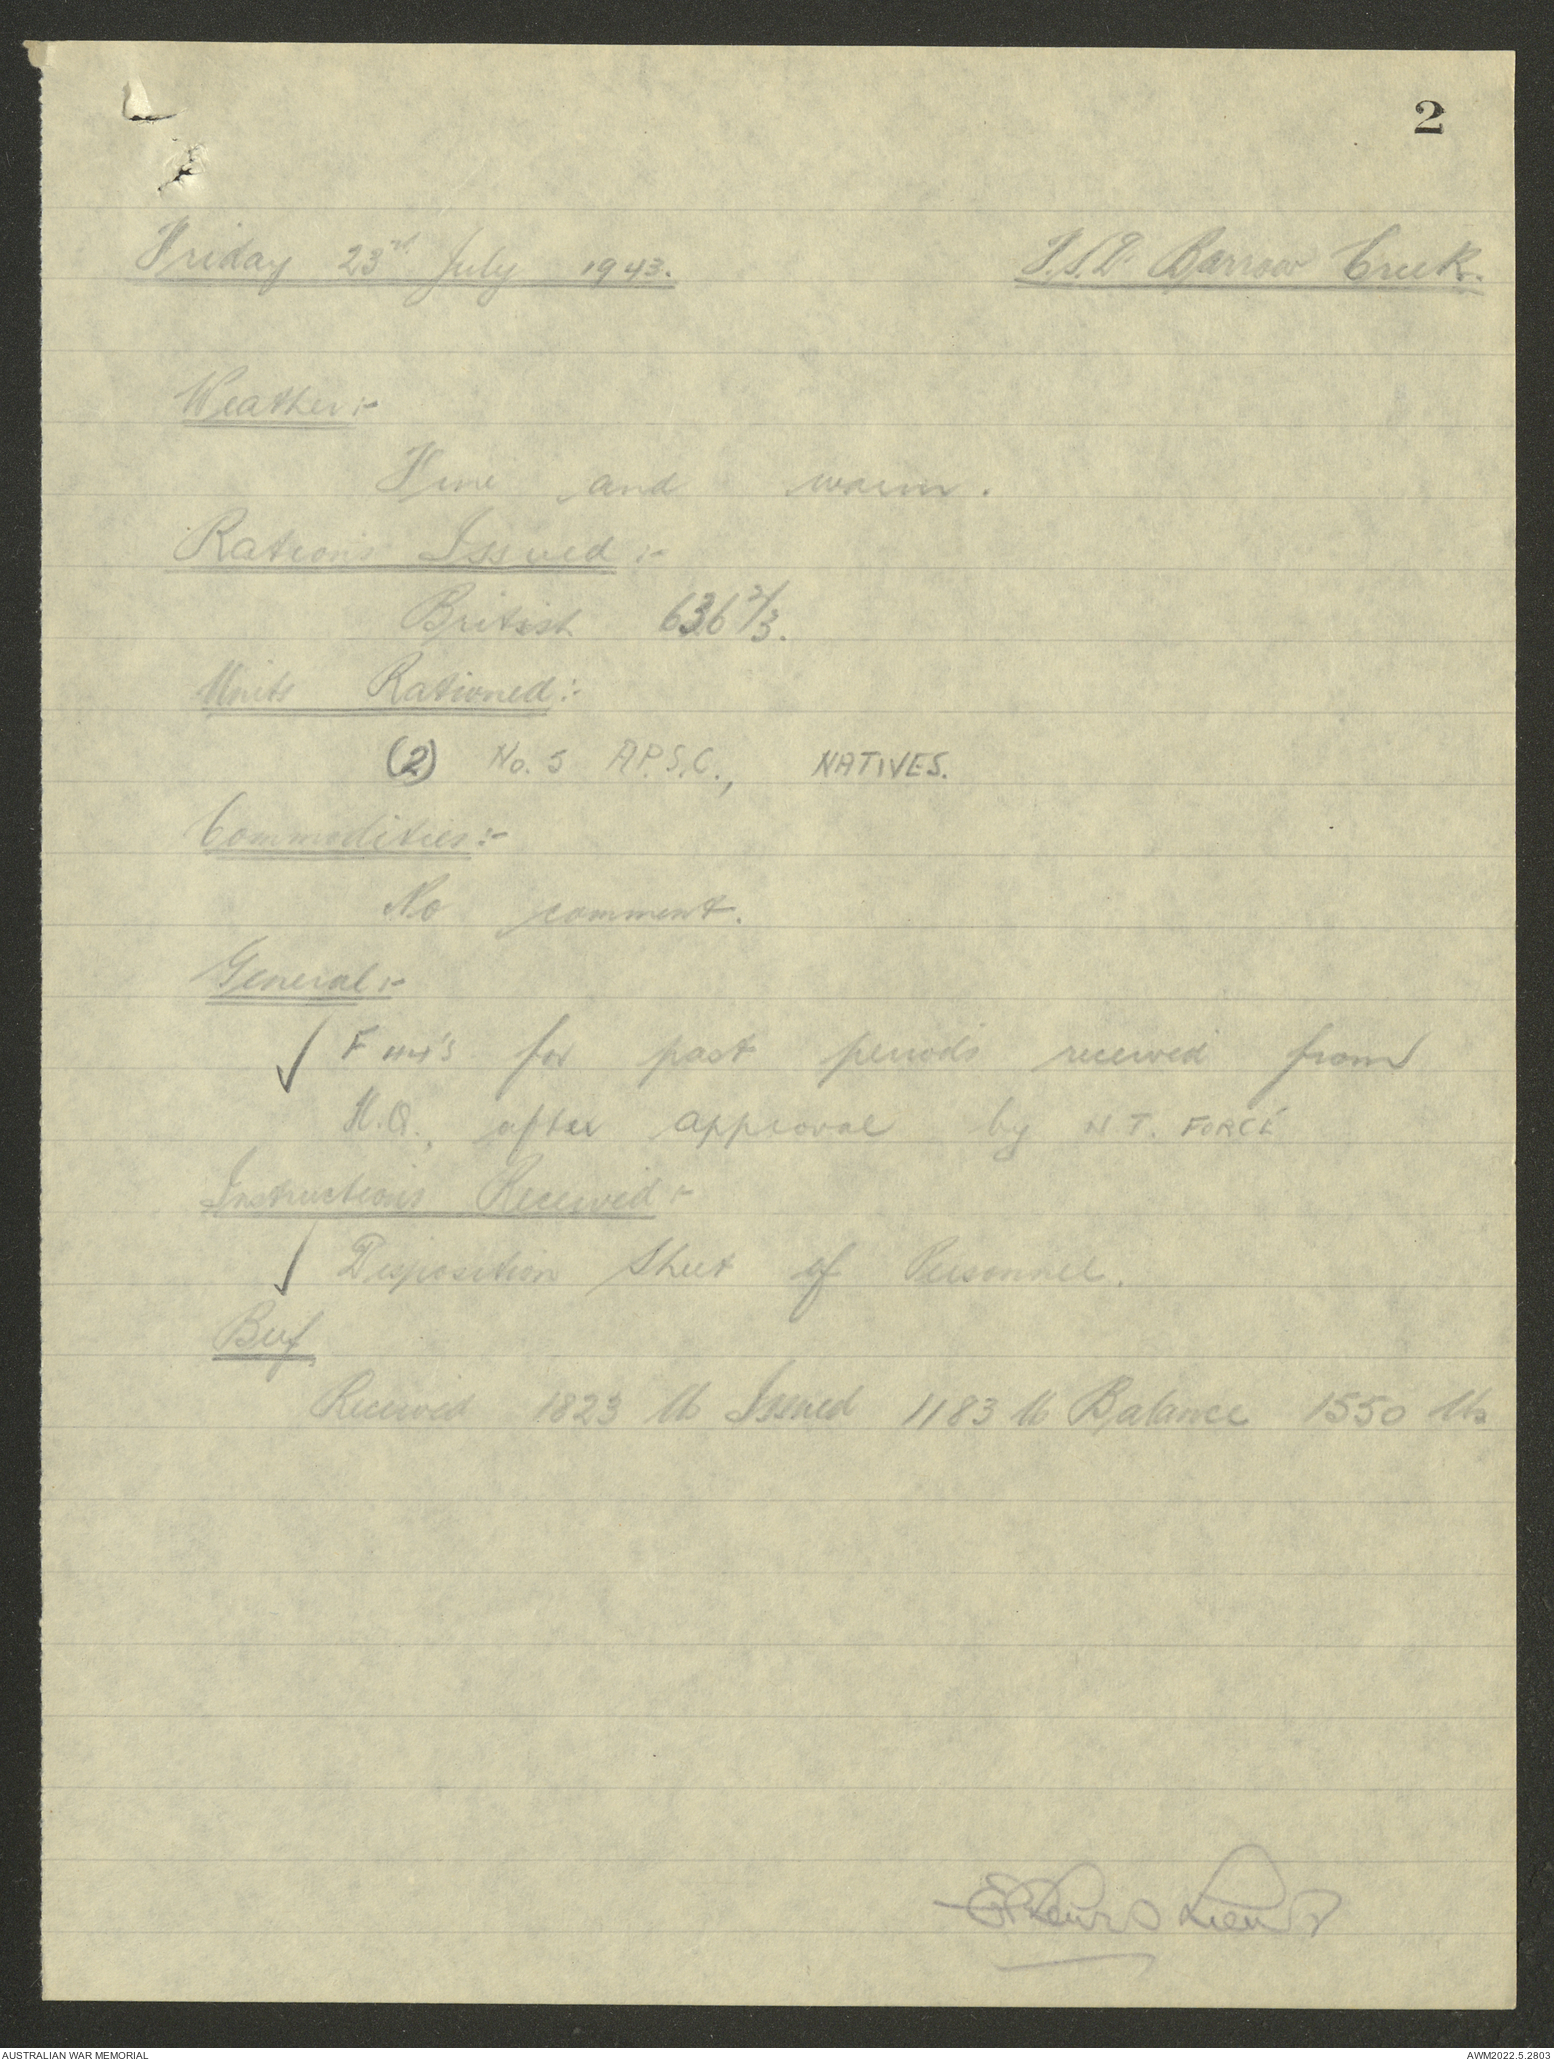 2
Friday 23rd July 1943. F.S.D. Barrow Creek.
Weather:-
Fine and warm.
Rations Issued:-
British 636 2/3.
Units Rationed:-
(2) No. 5 A.P.S.C., NATIVES.
Commodities:-
No comment.
General:-
F 's for past periods received from
H.Q., after approval by N.T. FORCE
Instructions Received:-
Disposition Sheet of Personnel.
Beef
Received 1823 lb Issued 1183 lb Balance 1550 lbs
Lieut
AUSTRALIAN WAR MEMORIAL AWM2022.5.2803